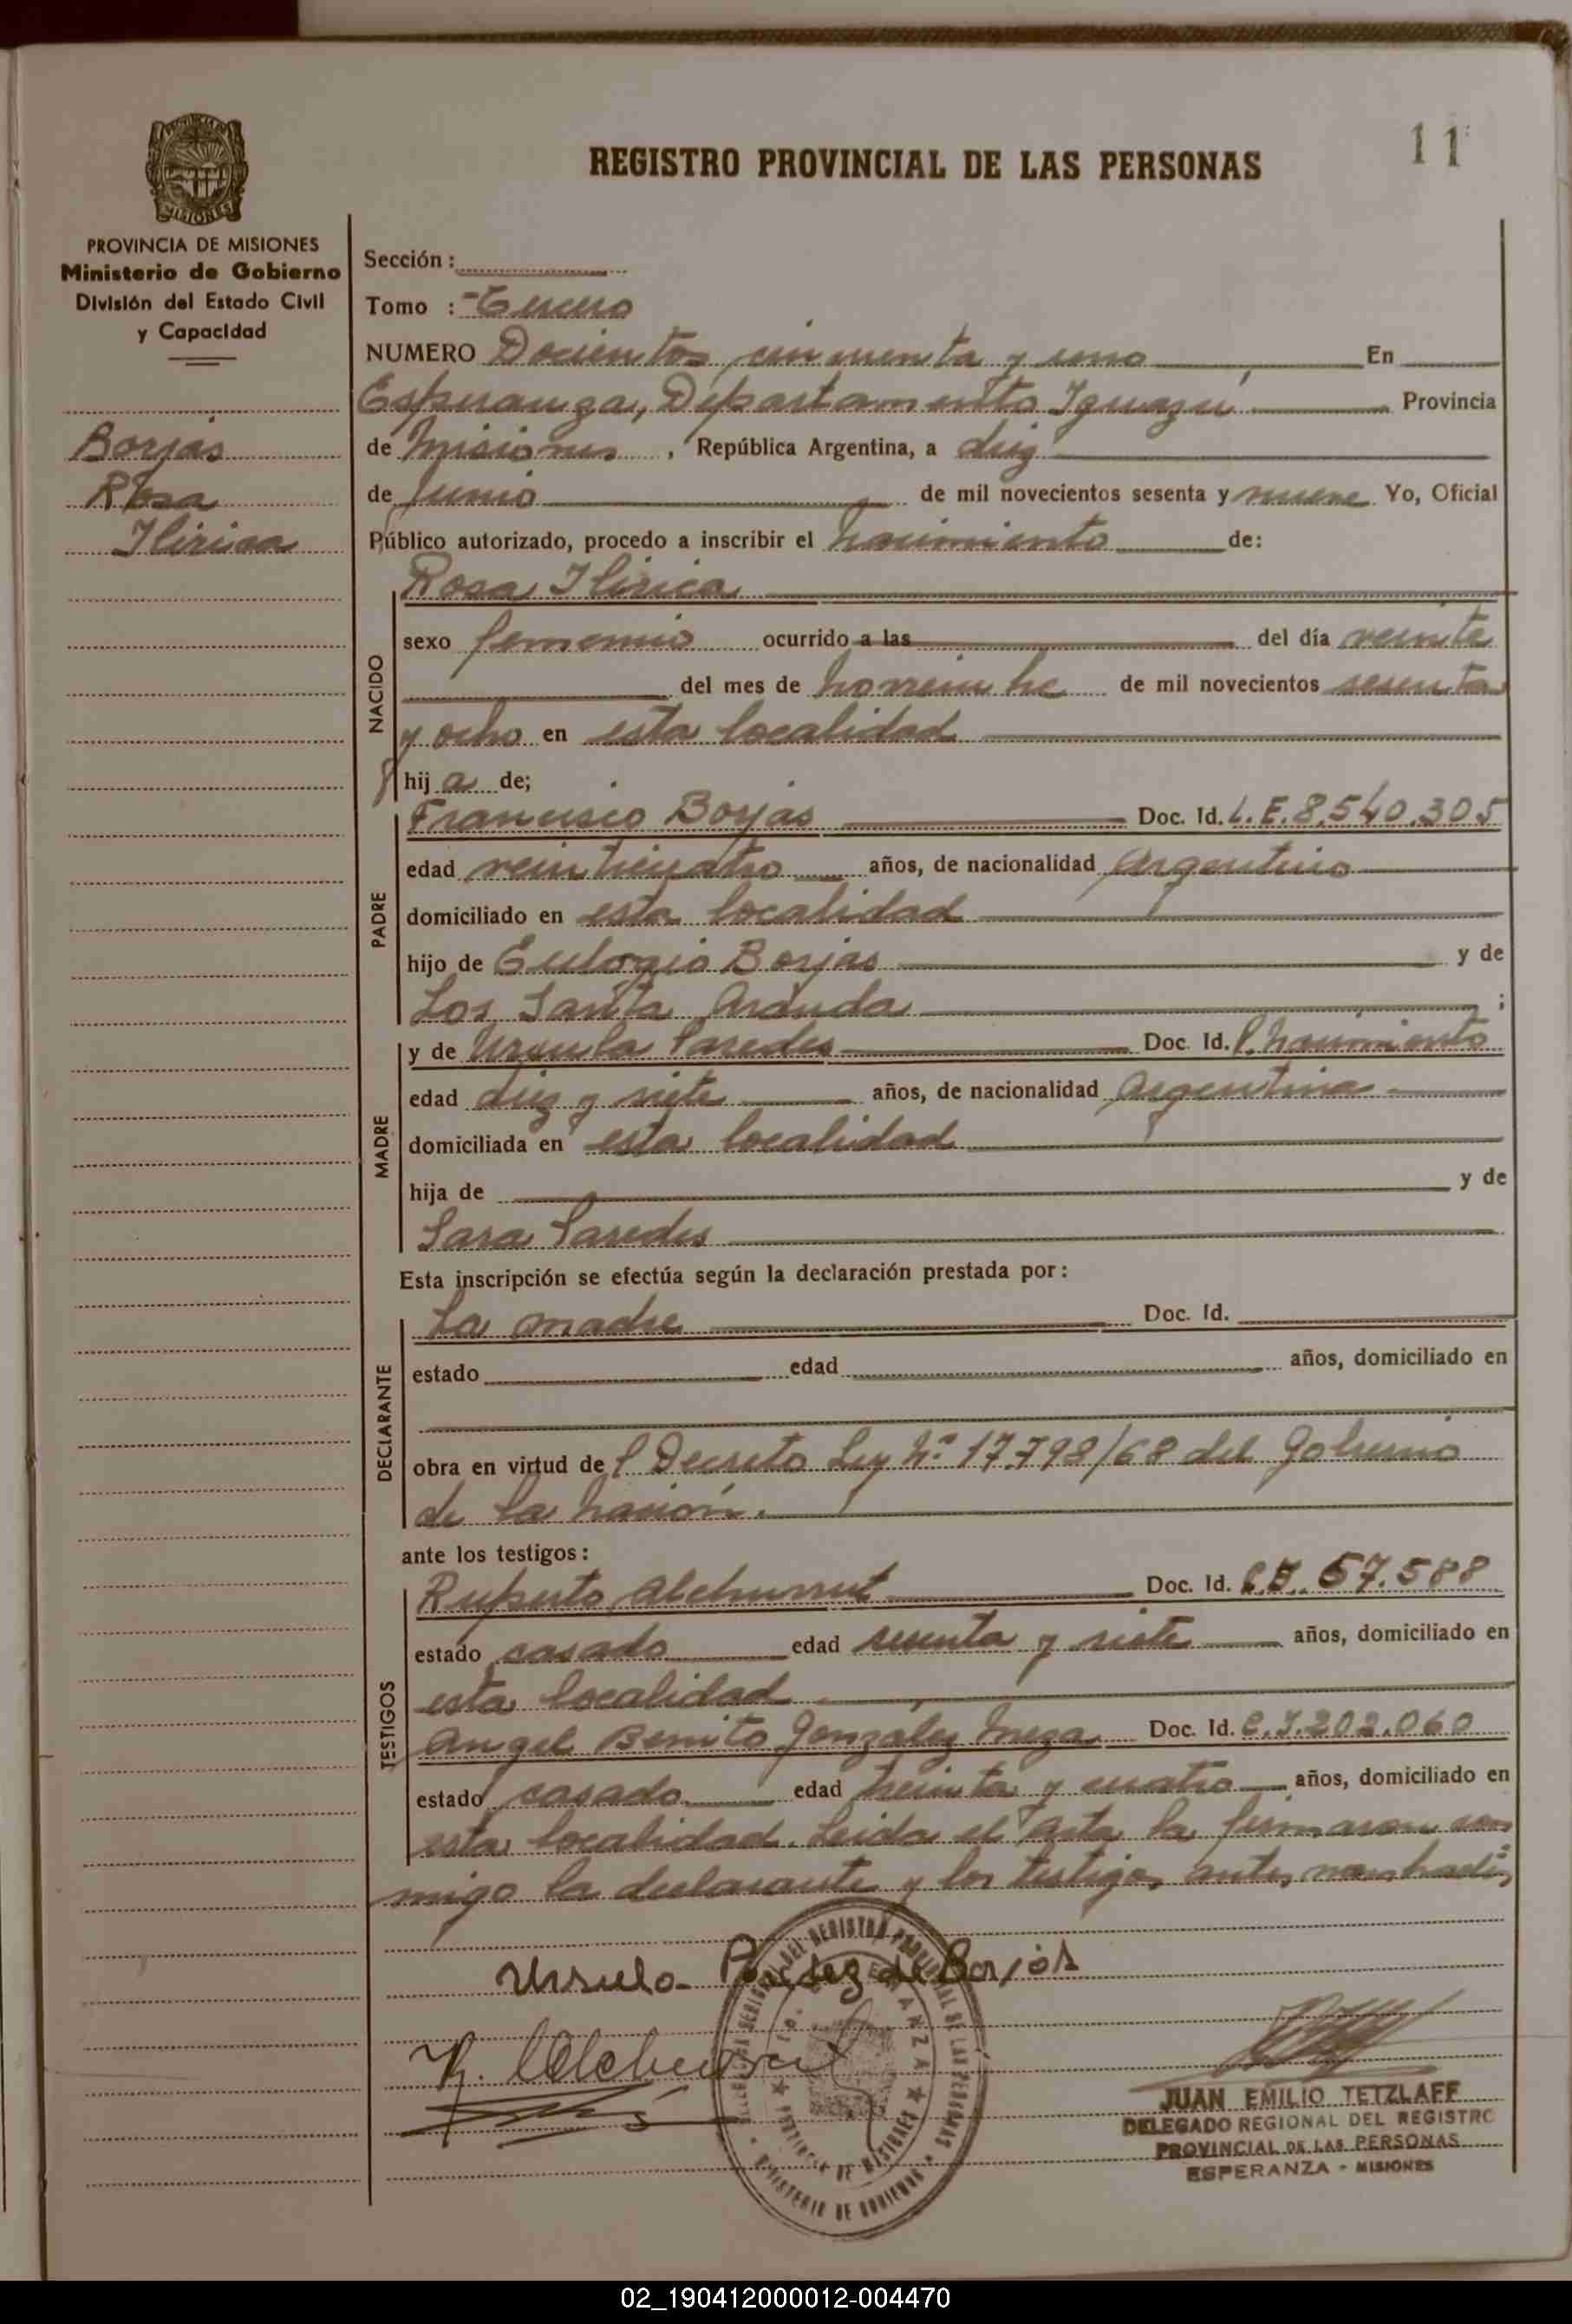 11
REGISTRO PROVINCIAL DE LAS PERSONAS
MISIONES
PROVINCIA DE MISIONES
Ministerio de Gobierno
División del Estado Civil
y Capacidad
Borjas
Rosa
Ilirica
Sección :
Tomo : Tercero
NUMERO Docientos cincuenta y uno En
Esperanza, Departamento Iguazú Provincia
de Misiones , República Argentina, a diez
de Junio de mil novecientos sesenta y nueve Yo, Oficial
Público autorizado, procedo a inscribir el nacimiento de:
Rosa Ilirica
NACIDO
sexo femenino ocurrido a las del día veinte
del mes de noviembre de mil novecientos sesenta
y ocho en esta localidad
hij a de;
PADRE
Francisco Borjas Doc. Id. L.E.8.540.305
edad veinticuatro años, de nacionalidad Argentino
domiciliado en esta localidad
hijo de Eulogio Borjas y de
Los Santa Aranda ;
MADRE
y de Ursula Paredes Doc. Id. P. nacimiento
edad diez y siete años, de nacionalidad Argentina
domiciliada en esta localidad
hija de y de
Sara Paredes
Esta inscripción se efectúa según la declaración prestada por :
DECLARANTE
La madre Doc. Id.
estado edad años, domiciliado en
obra en virtud de l Decreto Ley Nº 17.798/68 del Gobierno
de la nación.
ante los testigos :
TESTIGOS
Ruperto Alchurrut Doc. Id. 57.588
estado casado edad sesenta y siete años, domiciliado en
esta localidad
Angel Benito González Meza Doc. Id. C.I.202.060
estado casado edad treinta y cuatro años, domiciliado en
esta localidad. Leida el acta la firmaron con
migo la declarante y los testigos antes
Ursula Paredez de Borjas
R. Alchurrut
JUAN EMILIO TETZLAFF
DELEGADO REGIONAL DEL REGISTRO
PROVINCIAL DE LAS PERSONAS
ESPERANZA - MISIONES
02_190412000012-004470